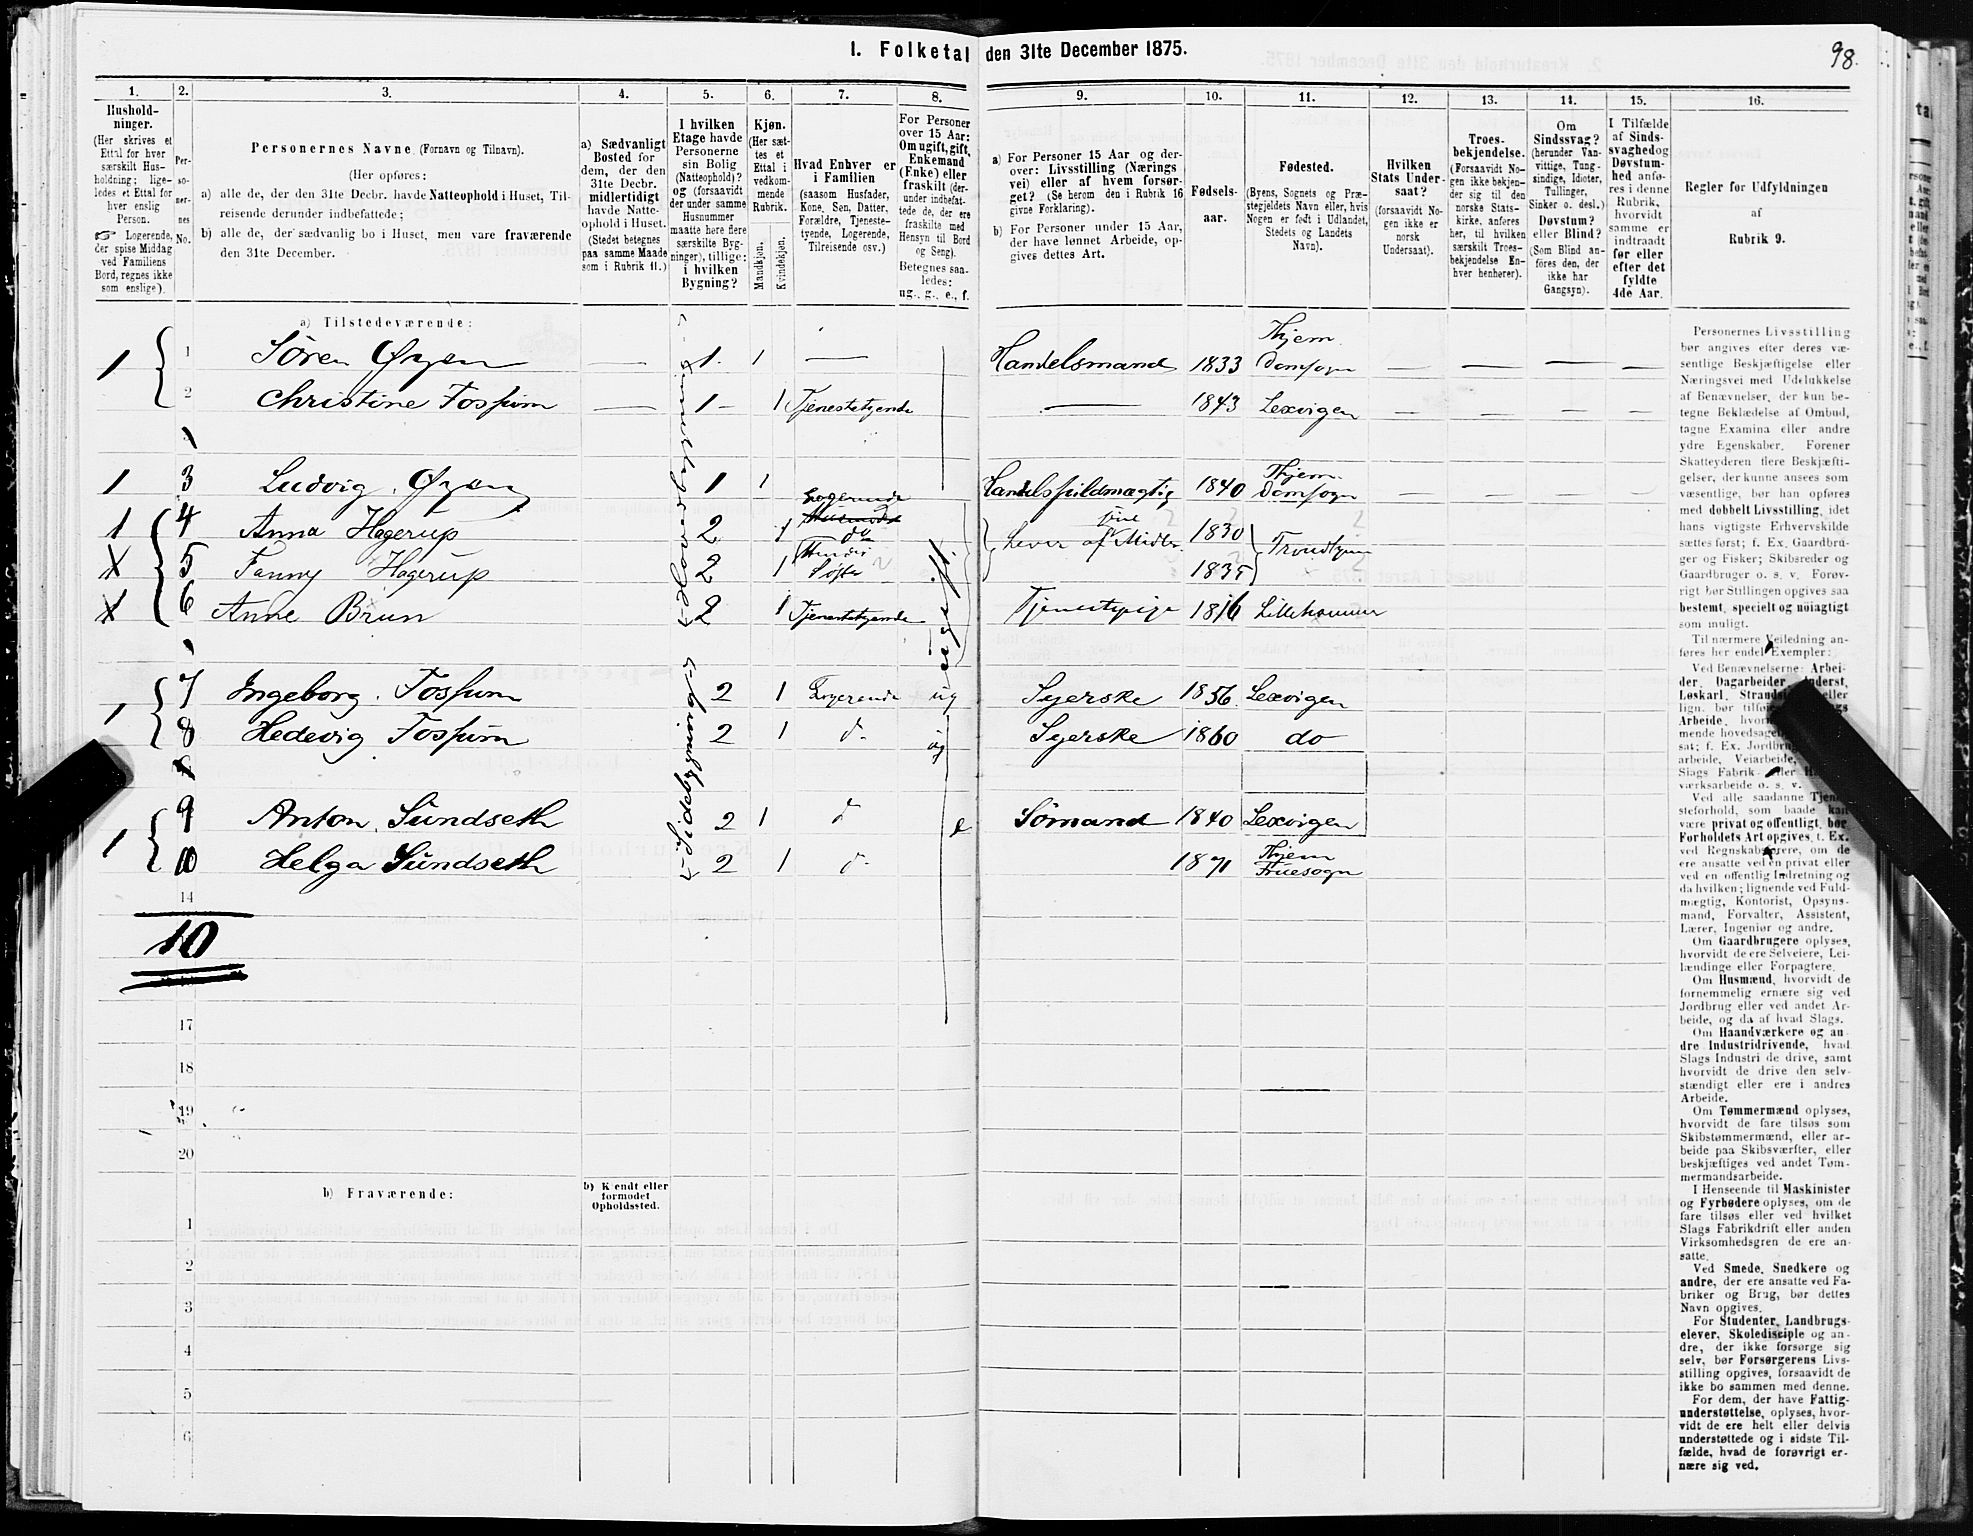 I. Folketal den 31te December 1875.
98.
1. 2. 3. 4. 5. 6. 7. 8. 9. 10. 11. 12. 13. 14. 15. 16.
Hushold-
ninger.
(Her skrives et
Ettal for hver
særskilt Hus-
holdning; lige-
ledes et Ettal for
hver enslig
Person.
☞ Logerende,
der spise Middag
ved Familiens
Bord, regnes ikke
som enslige).
Per-
so-
ner-
nes
No.
Personernes Navne (Fornavn og Tilnavn).
(Her opføres:
a) alle de, der den 31te Decbr. havde Natteophold i Huset, Til-
reisende derunder indbefattede;
b) alle de, der sædvanlig bo i Huset, men vare fraværende
den 31te December.
a) Sædvanligt
Bosted for
dem, der den
31te Decbr.
midlertidigt
havde Natte-
ophold i Huset.
(Stedet betegnes
paa samme Maade
som i Rubrik 11.)
I hvilken
Etage havde
Personerne
sin Bolig
(Natteophold)?
og (forsaavidt
der under samme
Husnummer
maatte høre flere
særskilte Byg-
ninger), tillige:
i hvilken
Bygning?
Kjøn.
(Her sæt-
tes et
Ettal i
vedkom-
mende
Rubrik.
Mandkjøn.
Kvindekjøn.
Hvad Enhver er
i Familien
(saasom Husfader,
Kone, Søn, Datter,
Forældre, Tjeneste-
tyende, Logerende,
Tilreisende osv.)
For Personer
over 15 Aar:
Om ugift, gift,
Enkemand
(Enke) eller
fraskilt (der-
under indbefat-
tede de, der ere
fraskilte med
Hensyn til Bord
og Seng).
Betegnes saa-
ledes:
ug., g., e., f.
a) For Personer 15 Aar og der-
over: Livsstilling (Nærings
vei) eller af hvem forsør-
get? (Se herom den i Rubrik 16
givne Forklaring).
b) For Personer under 15 Aar,
der have lønnet Arbeide, op-
gives dettes Art.
Fødsels-
aar.
Fødested.
(Byens, Sognets og Præ-
stegjeldets Navn eller, hvis
Nogen er født i Udlandet,
Stedets og Landets
Navn).
Hvilken
Stats Under-
saat?
(forsaavidt No-
gen ikke er
norsk
Undersaat).
Troes-
bekjendelse.
(Forsaavidt No-
gen ikke bekjen-
der sig til den
norske Stats-
kirke, anføres
her, til hvilken
særskilt Troes-
bekjendelse En-
hver henhører).
Om
Sindssvag?
(herunder Van-
vittige, Tung-
sindige, Idioter,
Tullinger,
Sinker o. desl.)
Døvstum?
eller Blind?
(Som Blind an-
føres den, der
ikke har
Gangsyn).
I Tilfælde
af Sinds-
svaghed og
Døvstum-
hed anfø-
res i denne
Rubrik,
hvorvidt
samme er
indtraadt
før eller
efter det
fyldte
4de Aar.
Regler for Udfyldningen
af
Rubrik 9.
a) Tilstedeværende:
1 1 Søren Øryen — 1. 1 — Handelsmand 1833 Thjem Domsogn — — — —
2 Christine Fossum — 1 – 1 Tjenestetyende — 1843 Lexvigen — — — —
1 3 Ludvig Øryen 1 1 Logerende Handelsfuldmægtig 1840 Thjem. Domsogn — — — —
1 4 Anna Hagerup 2 1 do Lever af sine Midler 1830 Trondhjem
5 Fanny Hagerup 2 1 Hendes Søster 1835
6 Anne Brun 2 1 Tjenestetyende Tjenestepige 1816 Lillehammer
Hovedbygning
ugift.
7 Ingeborg Fossum 2 1 Logerende ug Syerske 1856. Lexvigen
1 8 Hedevig Fossum 2 1 d. ug Syerske 1860 do
Sidebygning
9 Anton Sundseth 2 1 d e Sømand 1840 Lexvigen
1 10 Helga Sundseth 2 1 d. 1871 Thjem Fruesogn
14
10
17
18
19
20
b) Fraværende:
b) Kjendt eller
formodet
Opholdssted.
1
2
3
4
5
6
Personernes Livsstilling
bør angives efter deres væ-
sentlige Beskjæftigelse eller
Næringsvei med Udelukkelse
af Benævnelser, der kun be-
tegne Beklædelse af Ombud,
tagne Examina eller andre
ydre Egenskaber. Forener
Skatteyderen flere Beskjæfti-
gelser, der kunne ansees som
væsentlige, bør han opføres
med dobbelt Livsstilling, idet
hans vigtigste Erhvervskilde
sættes først; f. Ex. Gaardbru-
ger og Fisker; Skibsreder og
Gaardbruger o. s. v. Forøv-
rigt bør Stillingen opgives saa
bestemt, specielt og nøiagtigt
som muligt.
Til nærmere Veiledning an-
føres her endel Exempler:
Ved Benævnelserne: Arbei-
der, Dagarbeider, Inderst,
Løskarl, eller
lign. bør
Arbeide,
mende hovedsagel
sat; f. Ex. Jordbrug
arbeide, Veiarbeide,
Slags Fabrik- eller
værksarbeide o. s. v.
Ved alle saadanne Tjene-
steforhold, som baade kan
være privat og offentligt, bør
Forholdets Art opgives, t. Ex.
ved Regnskabsførere, om de
ere ansatte ved en privat eller
ved en offentlig Indretning og
da hvilken; lignende ved Fuld-
mægtig, Kontorist, Opsyns-
mand, Forvalter, Assistent,
Lærer, Ingeniør og andre.
Om Gaardbrugere oplyses,
hvorvidt de ere Selveiere, Lei-
lændinge eller Forpagtere.
Om Husmænd, hvorvidt de
fornemmelig ernære sig ved
Jordbrug eller ved andet Ar-
beide, og da af hvad Slags.
Om Haandværkere og an
dre Industridrivende, hvad
Slags Industri de drive, samt
hvorvidt de drive den selv-
stændigt eller ere i andres
Arbeide.
Om Tømmermænd oplyses,
hvorvidt de fare tilsøs som
Skibstømmermænd, eller ar-
beide paa Skibsværfter, eller
beskjæftiges ved andet Tøm-
mermandsarbeide.
I Henseende til Maskinister
og Fyrbødere oplyses, om de
fare tilsøs eller ved hvilket
Slags Fabrikdrift eller anden
Virksomhedsgren de ere an-
satte.
Ved Smede, Snedkere og
andre, der ere ansatte ved Fa-
briker og Brug, bør dettes
Navn opgives.
For Studenter, Landbrugs-
elever, Skoledisciple og an-
dre, der ikke forsørge sig
selv, bør Forsørgerens Livs-
stilling opgives, forsaavidt de
ikke bo sammen med denne.
For dem, der have Fattig-
understøttelse, oplyses, hvor-
vidt de ere helt eller delvis
understøttede og i sidste Til-
fælde, hvad de forøvrigt er-
nære sig ved.